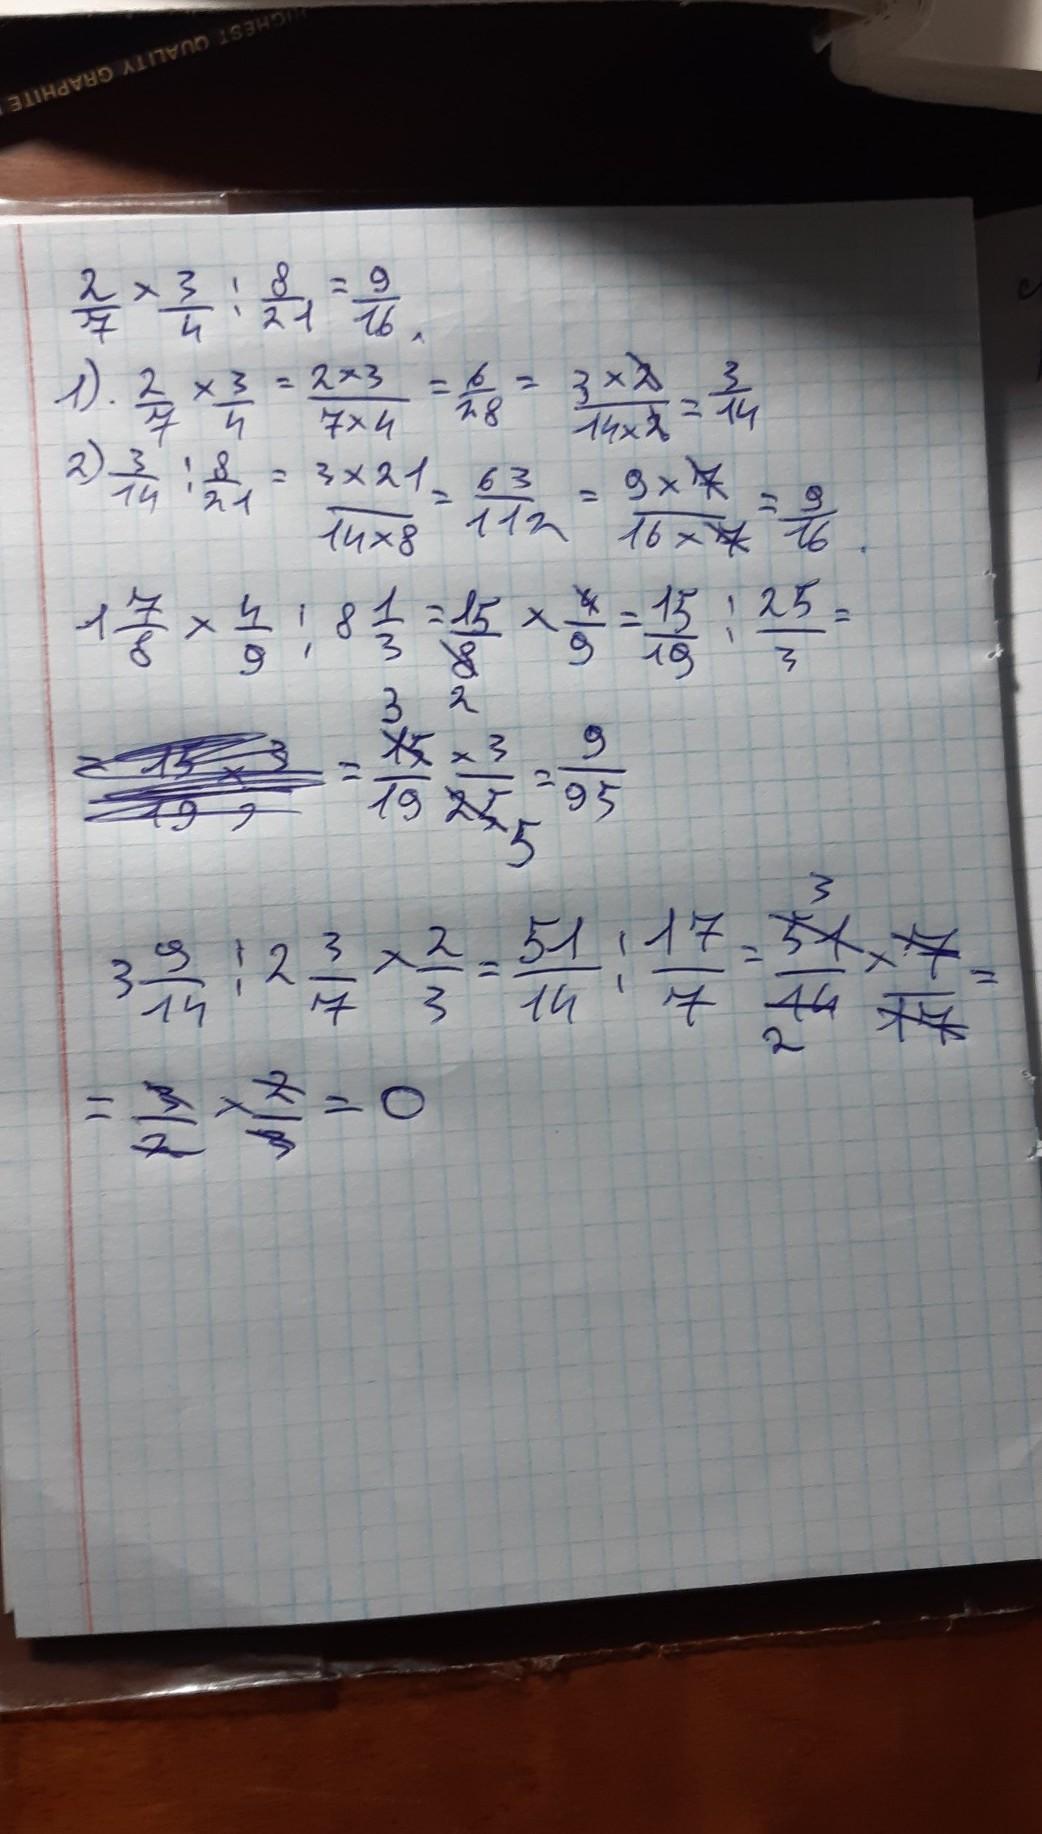 HIGHEST QUALITY GRAPHITE
2/7 × 3/4 : 8/21 = 9/16.
1). 2/7 × 3/4 = 2×3/7×4 = 6/28 = 3×2/14×2 = 3/14
2) 3/14 : 8/21 = 3×21/14×8 = 63/112 = 9×7/16×7 = 9/16.
1 7/8 × 4/9 : 8 1/3 = 15/8 × 4/9 = 15/19 : 25/3 =
3 2
= 15/19 × 3/25 = 9/95
5
3
3 9/14 : 2 3/7 × 2/3 = 51/14 : 17/7 = 51/14 × 7/17 =
2
= 3/2 × 2/3 = 0